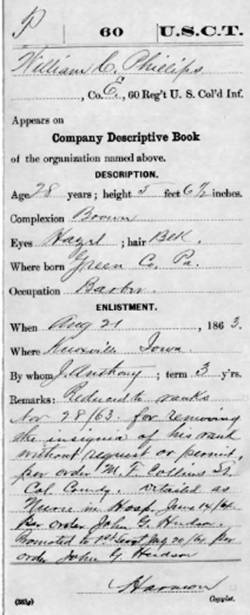 P | 60 | U.S.C.T.
William C. Phillips
, Co. E, 60 Reg't U. S. Col'd Inf.
Appears on
Company Descriptive Book
of the organization named above.
DESCRIPTION.
Age 28 years; height 5 feet 6½ inches.
Complexion Brown
Eyes Hazel; hair Blk.
Where born Green Co, Pa.
Occupation Barber
ENLISTMENT.
When Aug 21, 1863.
Where Knoxville Iowa
By whom J. Anthony; term 3 y'rs.
Remarks: Reduced to ranks
Nov 28/63. for removing
the insignia of his rank
without request or permit,
per order M. F. Collins Lt.
Col. Comdg. Detailed as
Nurse in Hosp. 14/64.
Per order John G. Hudson.
Promoted to 1st Sergt 20/64 per
order John G Hudson
Harrison
(383g) Copyist.